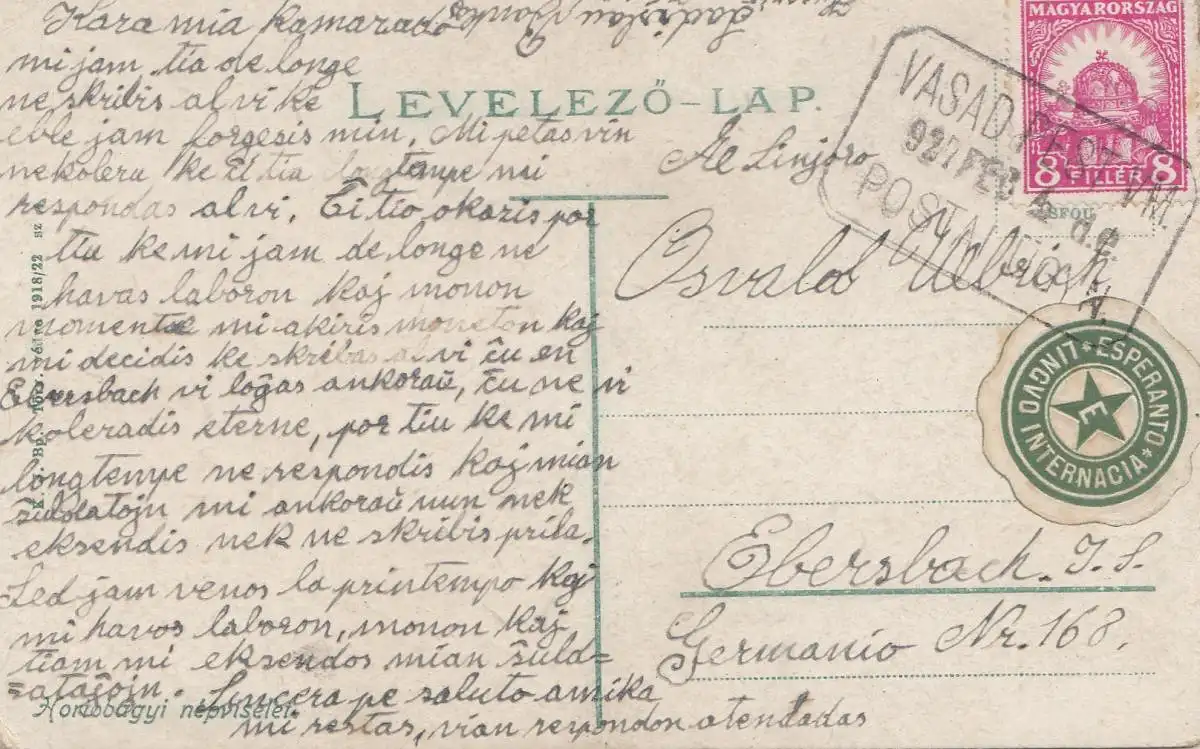 Kara mia kamarado
mi jam tia de longe
ne skribis al vi ke
eble jam forgesis min. Mi petas vin
nekoleru ke ĉi tia longtempe mi
respondas al vi. Ĉi tio okazis por
tiu ke mi jam de longe ne
havas laboron kaj monon
momente mi akiris moneton kaj
mi decidis ke skribas al vi ĉu en
Ebersbach vi loĝas ankoraŭ, ĉu ne vi
koleradis eterne, por tiu ke mi
longtempe ne respondis kaj mian
ŝuldatojn mi ankoraŭ nun nek
eksendis nek ne skribis prila.
Sed jam venos la printempo kaj
mi havos laboron, monon kaj
tiam mi eksendos mian ŝuld=
ataĵojn. Sincera pe saluto amika
mi restas, vian respondon atendadas
Ladislau
LEVELEZŐ-LAP.
Al Sinjoro
Osvald Ulbrich
Ebersbach. I. S.
Germanio Nr. 168.
MAGYARORSZÁG
8 FILLÉR 8
VASAD
927 FEB 5 d.e.
POSTA
LINGVO INTERNACIA * ESPERANTO *
E
1918/22 sz
Hortobágyi népviselet.